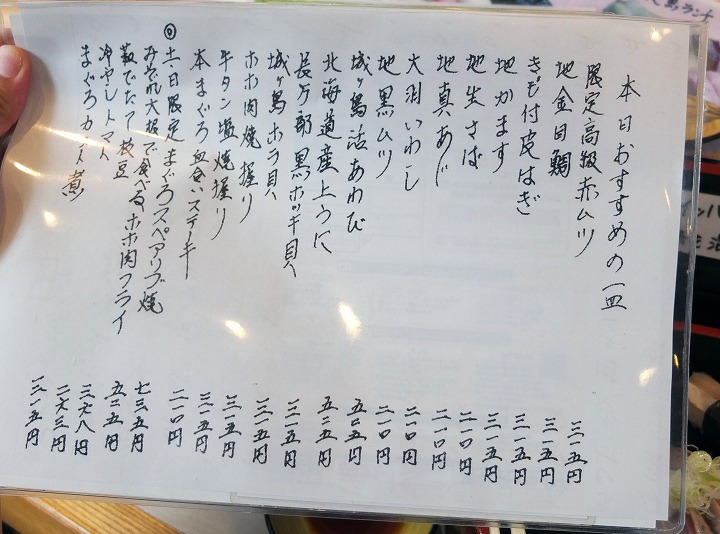 本日おすすめの一皿
限定高級赤ムツ 三一五円
地金目鯛 三一五円
きも付皮はぎ 三一五円
地かます 三一五円
地生さば 二一〇円
地真あじ 二一〇円
大羽いわし 二一〇円
地黒ムツ 二一〇円
城ヶ島活あわび 五二五円
北海道産上うに 五二五円
長ケ部黒ホッキ貝 三一五円
城ヶ島ホラ貝 三一五円
ホホ肉焼握り 三一五円
牛タン塩焼握り 三一五円
本まぐろ血合いステーキ 二一〇円
◎土日限定まぐろスペアリブ焼 七三五円
みぞれ大根で食べるホホ肉フライ 五二五円
茹でたて枝豆 三六八円
冷やしトマト 二六三円
まぐろカマ煮 三一五円